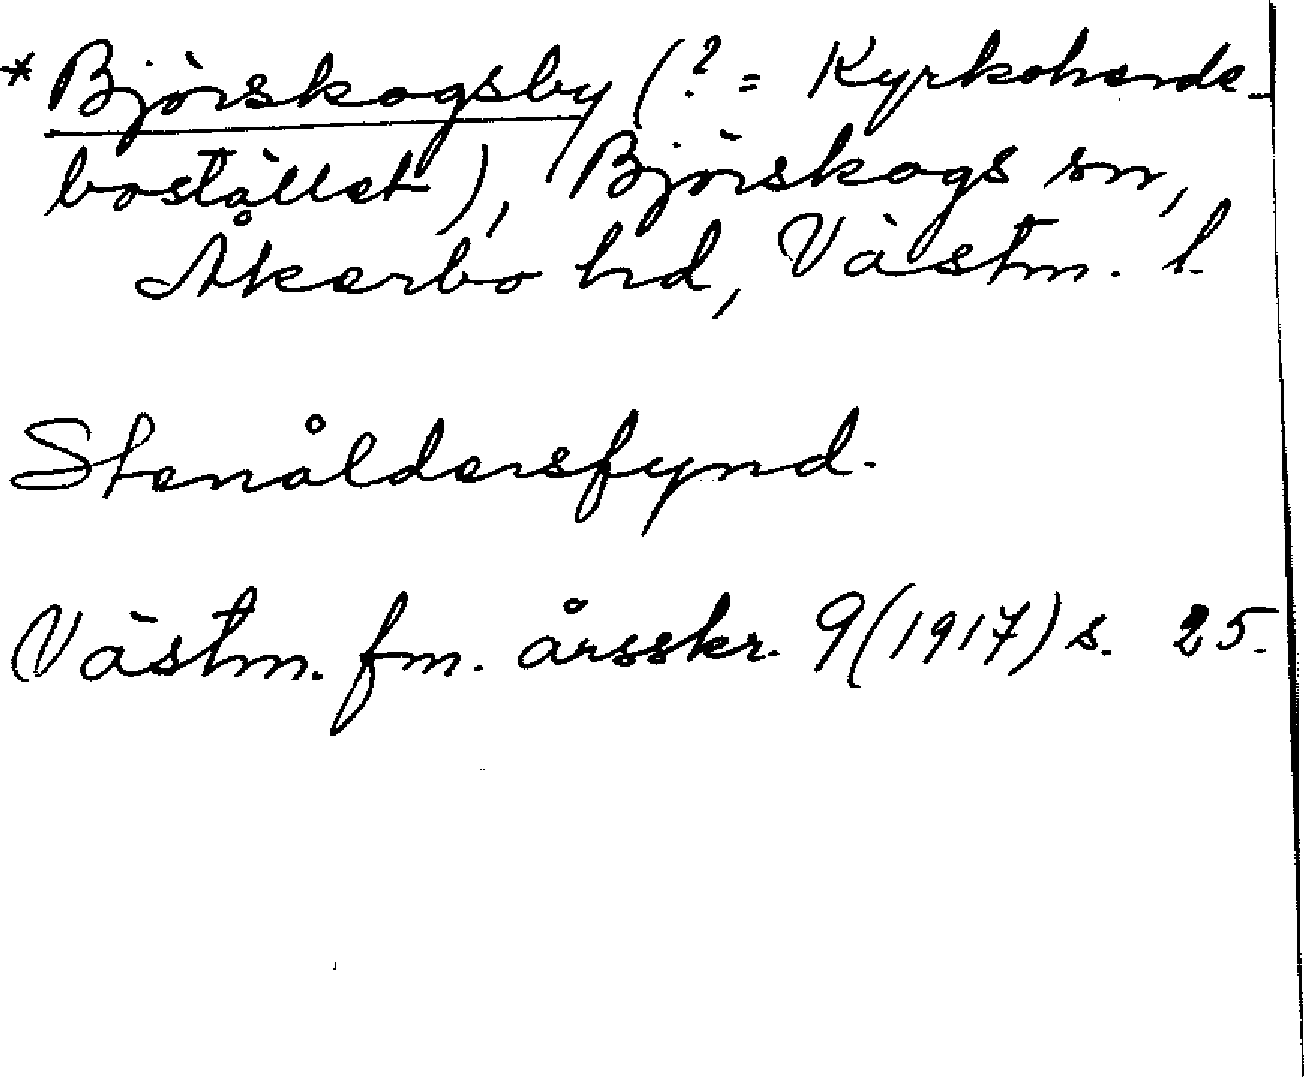 * Björskogsby (? = Kyrkoherde-
bostället), Björskogs sn,
Åkerbo hd, Västm. l.
Stenåldersfynd.
Västm. fm. årsskr. 9(1917) s. 25.